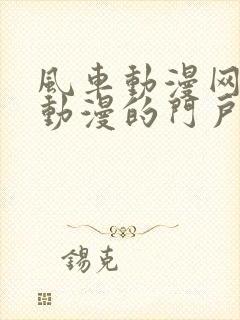 風車動漫网
動漫的門戶
錫克